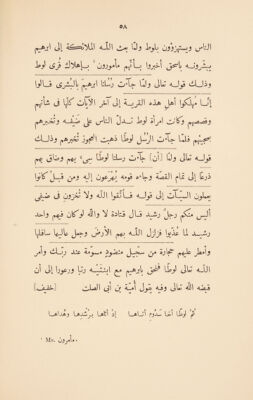 ٥٨
الناس ويستهزؤن بلوط ولمّا بعث اللّه الملائكة إلى ابرهيم
يبشّرونه باسحق أخبروا بأنّهم مأمورون¹ بإهلاك قُرى لوط
وذلك قوله تعالى ولمّا جآءت رُسُلنا ابرهيمَ بالبُشْرى قالوا
إنّا مُهلكوا أهل هذه القرية إلى آخر الآيات كلّها فى شأنهم
وقصصهم وكانت امرأة لوط تدلّ الناس على ضَيْفه وتُخبرهم
بمجيئهم فلمّا جآءت الرُسُل لوطًا ذهبت العجوز تُخبرهم وذلك
قوله تعالى ولمّا [أن] جآءت رسلنا لوطًا سِىءَ بهم وضاق بهم
ذرعًا إلى تمام القصّة وجاءه قومه يُهْرَعون إليه ومن قبلُ كانوا
يعملون السيّآت إلى قوله فاتّقوا اللّه ولا تُخْزونِ فى ضيفى
أليس منكم رجلٌ رشيد قال قتادة لا واللّه لو كان فيهم واحد
رشيد لما عُذّبوا فزلزل اللّه بهم الأرض وجعل عاليها سافلها
وأمطر عليهم حجارة من سجّيل منضود مسوّمة عند ربّك وأمر
اللّه تعالى لوطًا فلحق بابرهيم مع ابنتَيْه ريتا ورعورا إلى أن
قبضه اللّه تعالى وفيه يقول أُميّة بن أبى الصلت [خفيف]
ثمّ لوطٌ أخا سَدُومَ أتاها إذ أتاها برُشْدها وهُداها
¹ Ms. مأمرون.